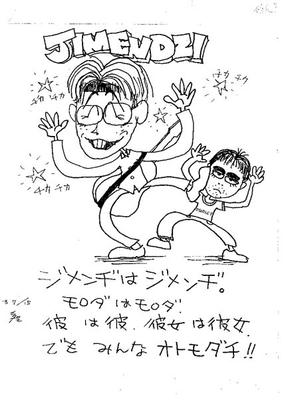 JIMENDZI
チカ チカ
チカ チカ
チカ チカ
ジメンヂは ジメンヂ。
モロダはモロダ.
彼 は 彼. 彼女 は 彼女.
でも みんな オトモダチ!!